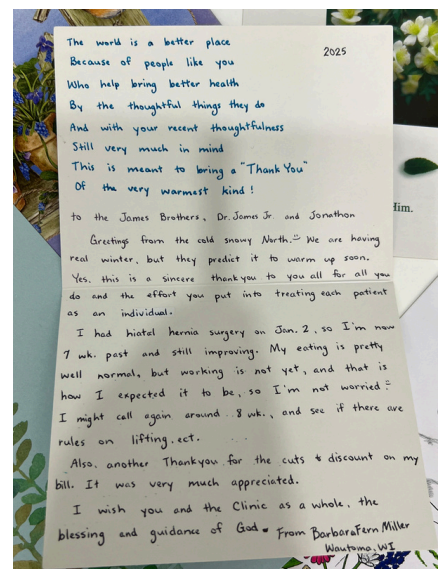 The world is a better place
2025
Because of people like you
Who help bring better health
By the thoughtful things they do
And with your recent thoughtfulness
Still very much in mind
This is meant to bring a "Thank You"
Of the very warmest kind!
to the James Brothers, Dr. James Jr. and Jonathon
Greetings from the cold snowy North. We are having
real winter, but they predict it to warm up soon.
Yes, this is a sincere thank you to you all for all you
do and the effort you put into treating each patient
as an individual.
I had hiatel hernia surgery on Jan. 2, so I'm now
7 wk. past and still improving. My eating is pretty
well normal, but working is not yet, and that is
how I expected it to be, so I'm not worried.
I might call again around 8 wk., and see if there are
rules on lifting.ect.
Also, another Thankyou for the cuts & discount on my
bill. It was very much appreciated.
I wish you and the Clinic as a whole, the
blessing and guidance of God. From BarbaraFern Miller
Wautoma, WI
Him.